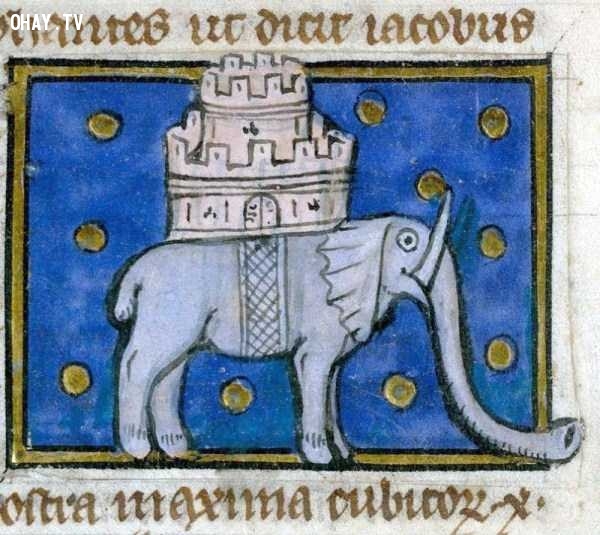 OHAY.TV
ut dicit iacobus
ostra maxima cubitoꝝ ·x·